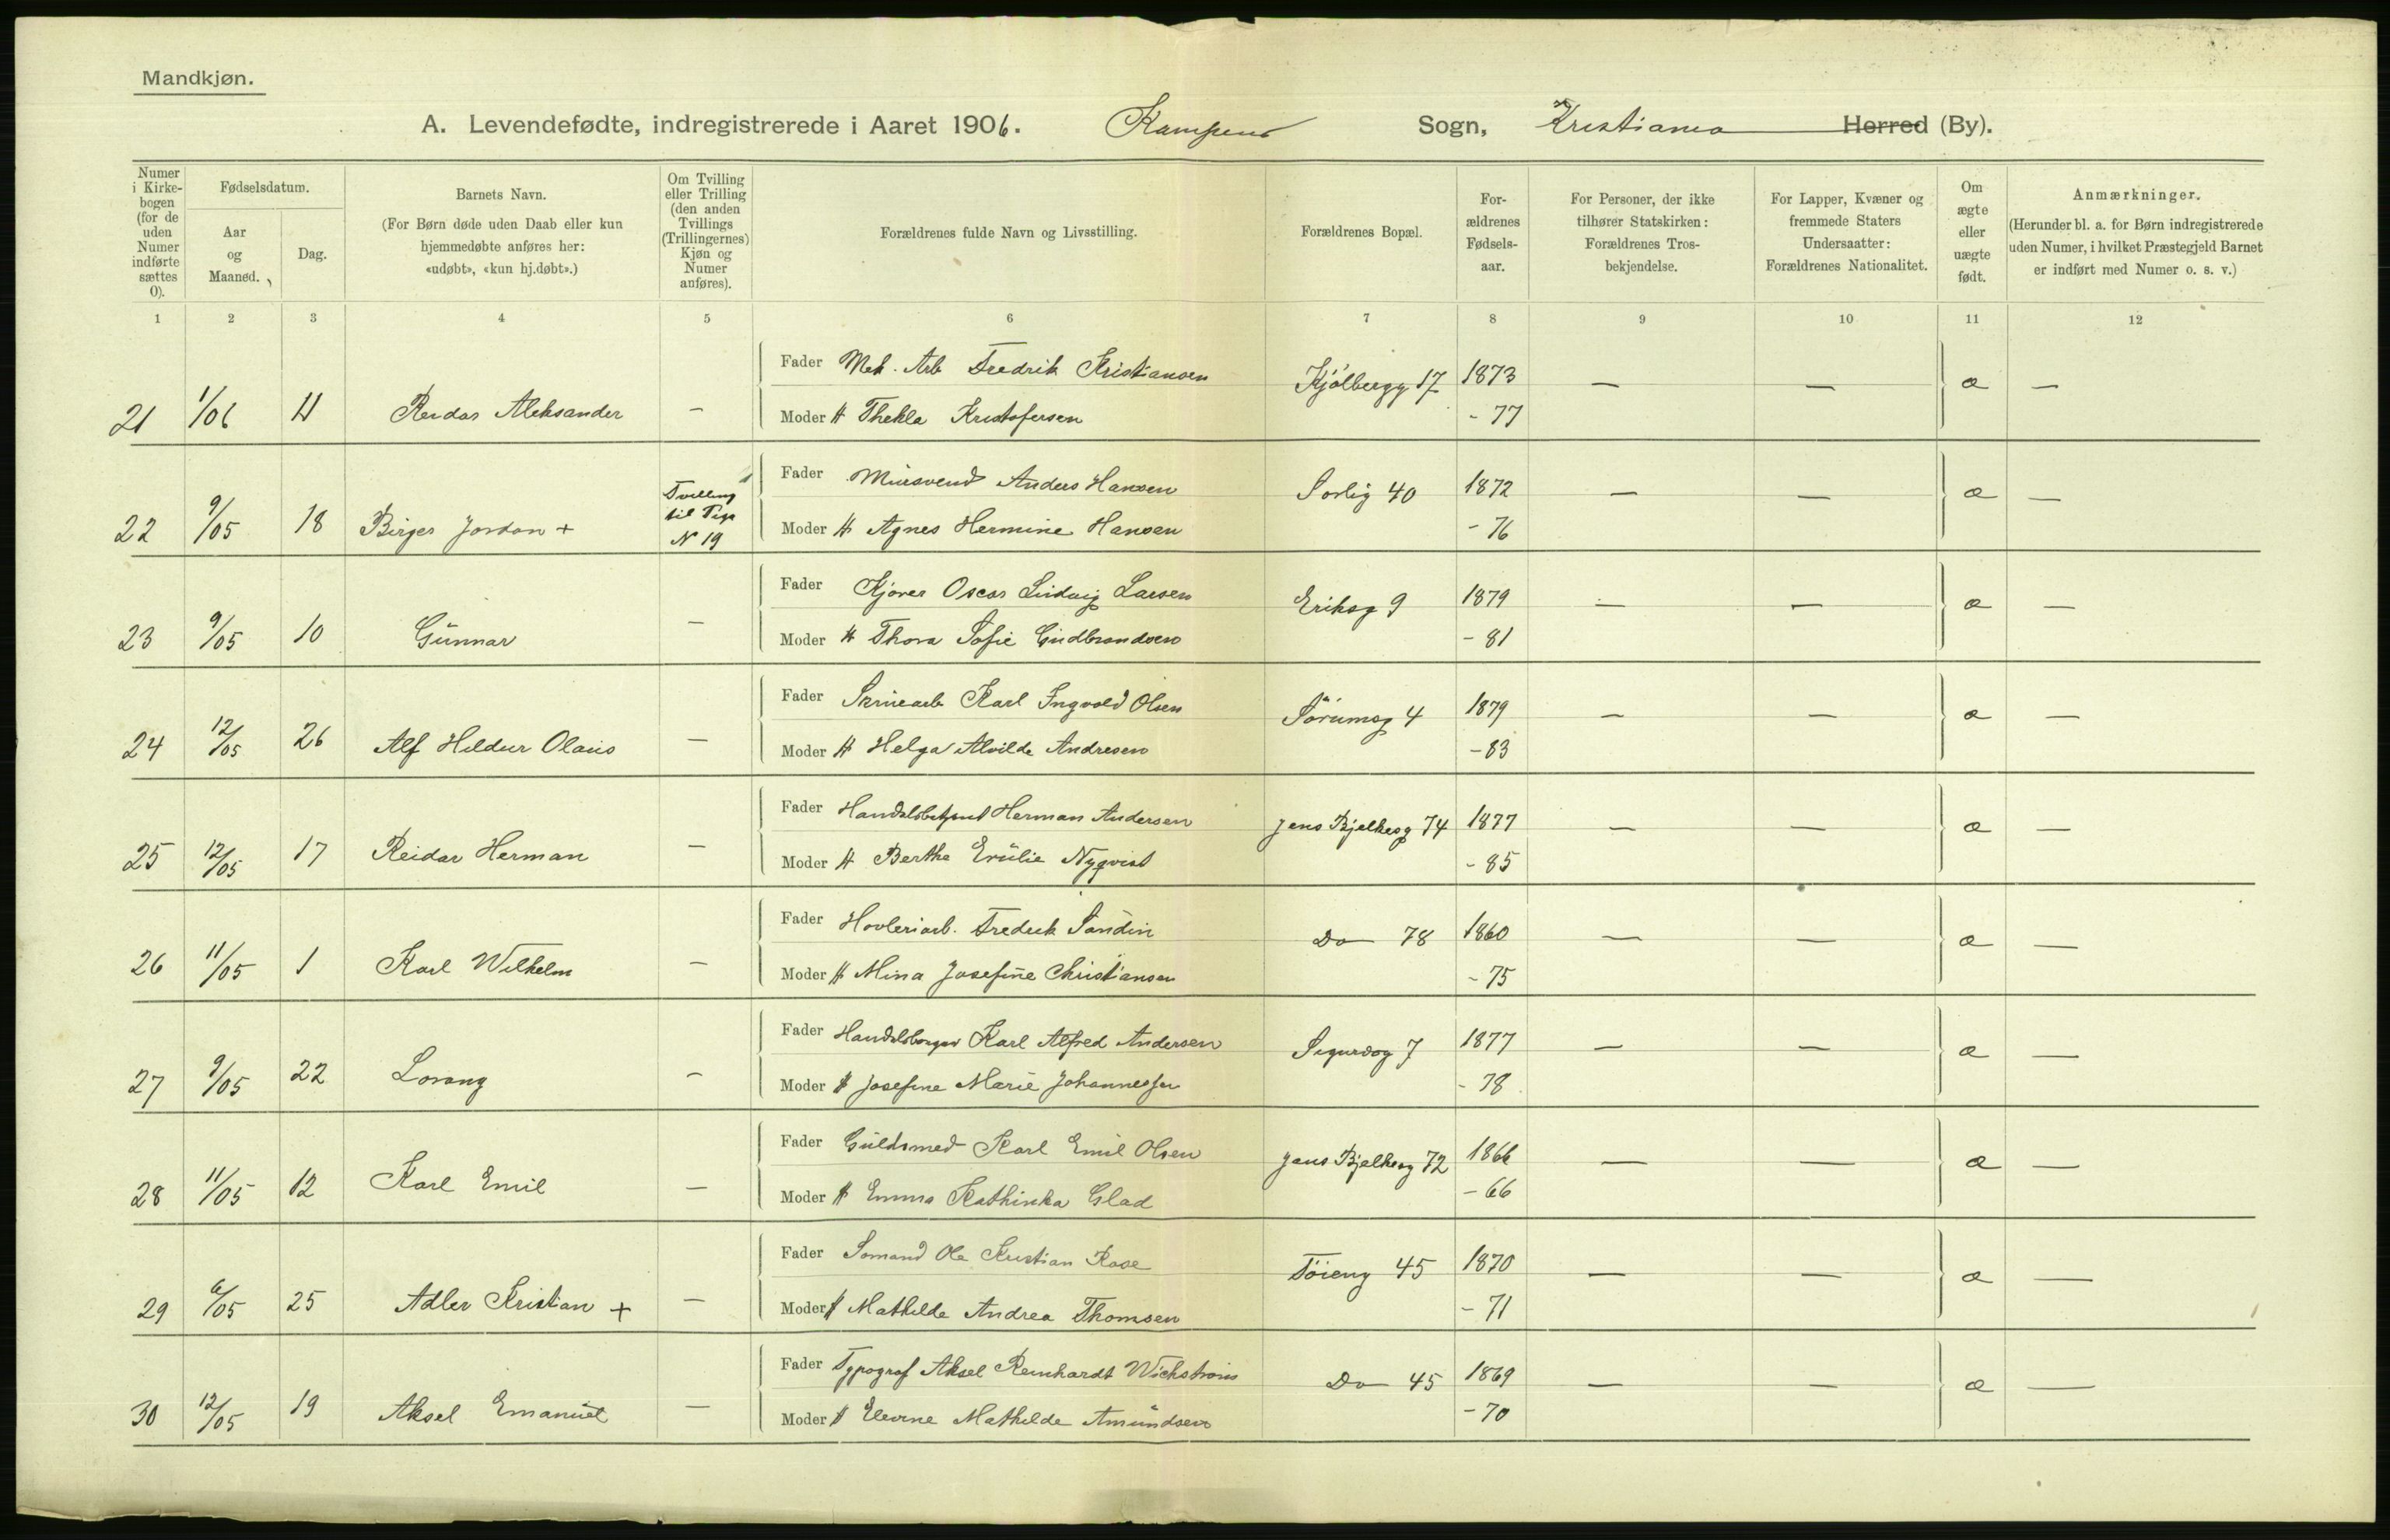 Mandkjøn.
A. Levendefødte, indregistrerede i Aaret 1906. Kampens Sogn, Kristiania Herred (By).
Numer i Kirkebogen (for de uden Numer indførte sættes 0).
Fødselsdatum.
Aar og Maaned.
Dag.
Barnets Navn.
(For Børn døde uden Daab eller kun hjemmedøbte anføres her: «udøbt», «kun hj.døbt».)
Om Tvilling eller Trilling (den anden Tvillings (Trillingernes) Kjøn og Numer anføres).
Forældrenes fulde Navn og Livsstilling.
Forældrenes Bopæl.
Forældrenes Fødselsaar.
For Personer, der ikke tilhører Statskirken: Forældrenes Trosbekjendelse.
For Lapper, Kvæner og fremmede Staters Undersaatter: Forældrenes Nationalitet.
Om ægte eller uægte født.
Anmærkninger.
(Herunder bl. a. for Børn indregistrerede uden Numer, i hvilket Præstegjeld Barnet er indført med Numer o. s. v.)
1 2 3 4 5 6 7 8 9 10 11 12
Fader Mek. Arb Fredrik Kristiansen Kjølbergg 17 1873 — — æ —
21 1/06 11 Reidar Aleksander — Moder H Thekla Kristofersen - 77
Fader Mursvend Anders Hansen Sorlig 40 1872 — — æ —
22 9/05 18 Birger Jordan + Tvilling til Pige N 19 Moder H Agnes Hermine Hansen - 76
Fader Kjører Oscar Ludvig Larsen Eriksg 9 1879 — — æ —
23 9/05 10 Gunnar — Moder H Thora Sofie Gudbrandsen - 81
Fader Skruearb Karl Ingvald Olsen Sørumsg 4 1879 — — æ —
24 12/05 26 Alf Hildur Olaus — Moder H Helga Alvilde Andresen - 83
Fader Handelsbetjent Herman Andersen Jens Bjelkesg 74 1877 — — æ —
25 12/05 17 Reidar Herman — Moder H Berthe Emilie Nyqvist - 85
Fader Hovleriarb. Fredrik Sandin Do 78 1860 — — æ —
26 11/05 1 Karl Wilhelm — Moder H Mina Josefine Christiansen - 75
Fader Handelsborger Karl Alfred Andersen Sigurdsg 7 1877 — — æ —
27 9/05 22 Lorang — Moder H Josefine Marie Johannessen - 78
Fader Guldsmed Karl Emil Olsen Jens Bjelkesg 72 1866 — — æ —
28 11/05 12 Karl Emil — Moder H Emma Kathinka Glad - 66
Fader Sømand Ole Kristian Rose Tøieng 45 1870 — — æ —
29 6/05 25 Adler Kristian + — Moder H Mathilde Andrea Thomsen - 71
Fader Typograf Aksel Reinhardt Wickstrøm Do 45 1869 — — æ —
30 12/05 19 Aksel Emanuel — Moder H Elevine Mathilde Amundsen - 70